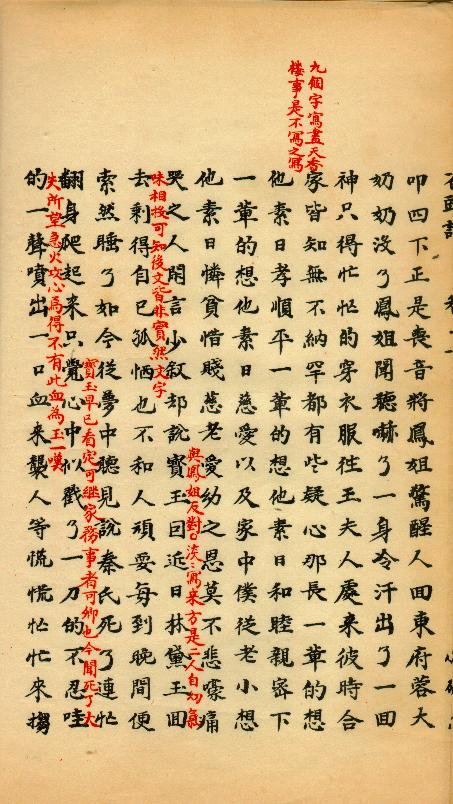 九個字寫盡天香
樓事是不寫之寫
叩四下正是喪音將鳳姐驚醒人回東府蓉大
奶奶沒了鳳姐聞聽嚇了一身冷汗出了一回
神只得忙忙的穿衣服徃王夫人處来彼時合
家皆知無不納罕都有些疑心那長一軰的想
他素日孝順平一軰的想他素日和睦親宻下
一軰的想他素日慈愛以及家中僕從老小想
他素日憐貧惜賤慈老愛幼之恩莫不悲嚎痛
哭之人閑言少叙却說寳玉因近日林黛玉回
與鳳姐反對淡〻寫来方是二人自幼氣
味相投可知後文皆非實然文字
去剩得自已孤恓也不和人頑耍每到晚間便
索然睡了如今從夢中聽見說秦氏死了連忙
翻身爬起来只覺心中似戳了一刀的不忍哇
寳玉早已看定可継家務事者可卿也今聞死了大
失所望急火攻心焉得不有此血為玉一嘆
的一聲噴出一口血来襲人等慌慌忙忙来搊